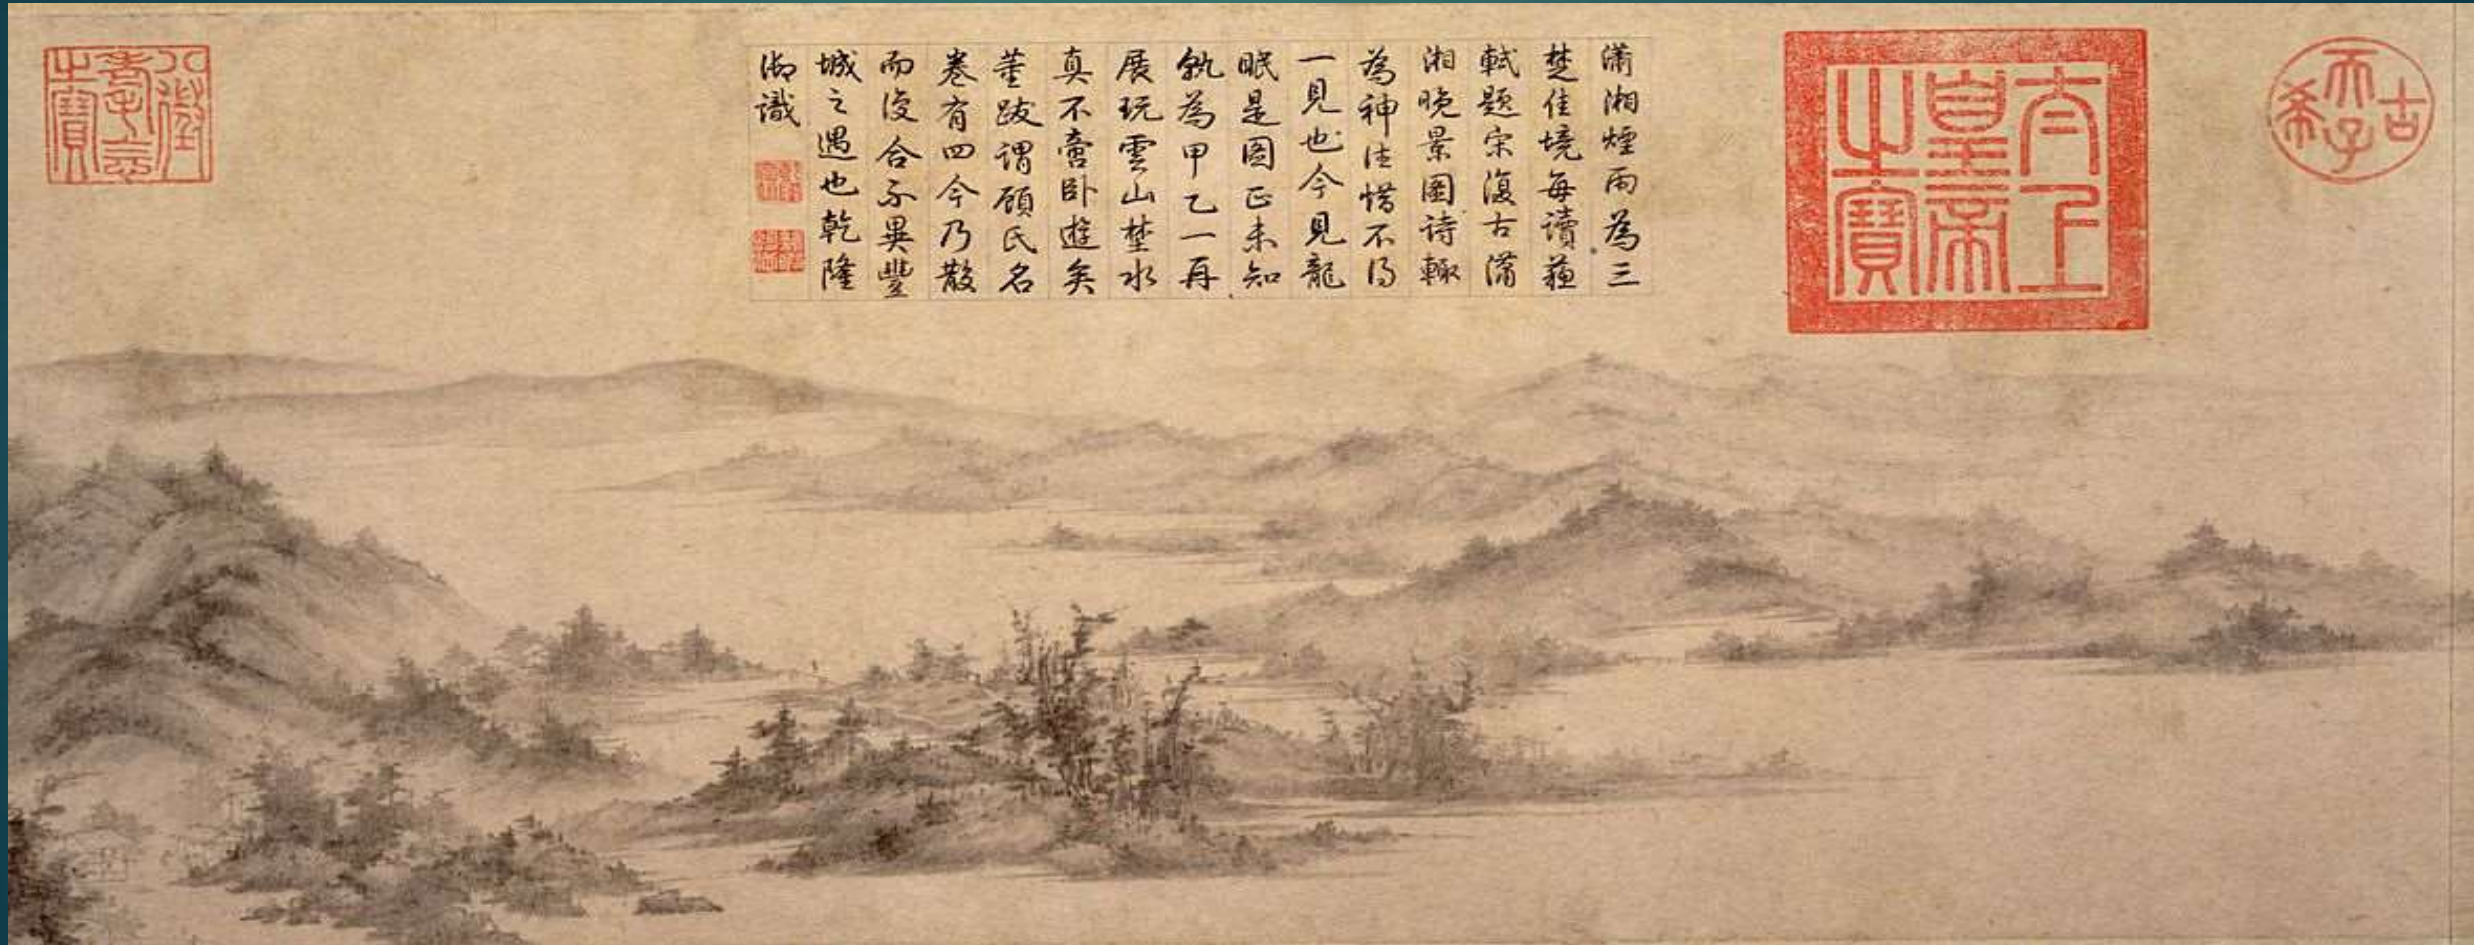 古
天子
希
太上
皇帝
之寶
瀟湘煙雨為三
楚佳境每讀蘇
軾題宋復古瀟
湘晚景圖詩輒
為神往惜不得
一見也今見龍
眠是圖正未知
孰為甲乙一再
展玩雲山埜水
真不啻卧遊矣
董跋謂顧氏名
卷有四今乃散
而復合不異豐
城之遇也乾隆
御識
八徵
耄念
之寶